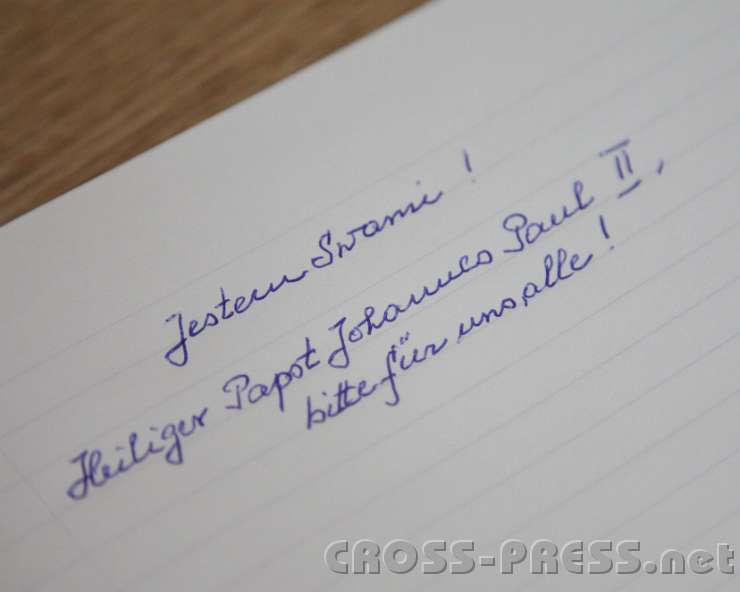 Jestem Swami!
Heiliger Papst Johannes Paul II,
bitte für uns alle!
CROSS-PRESS.net